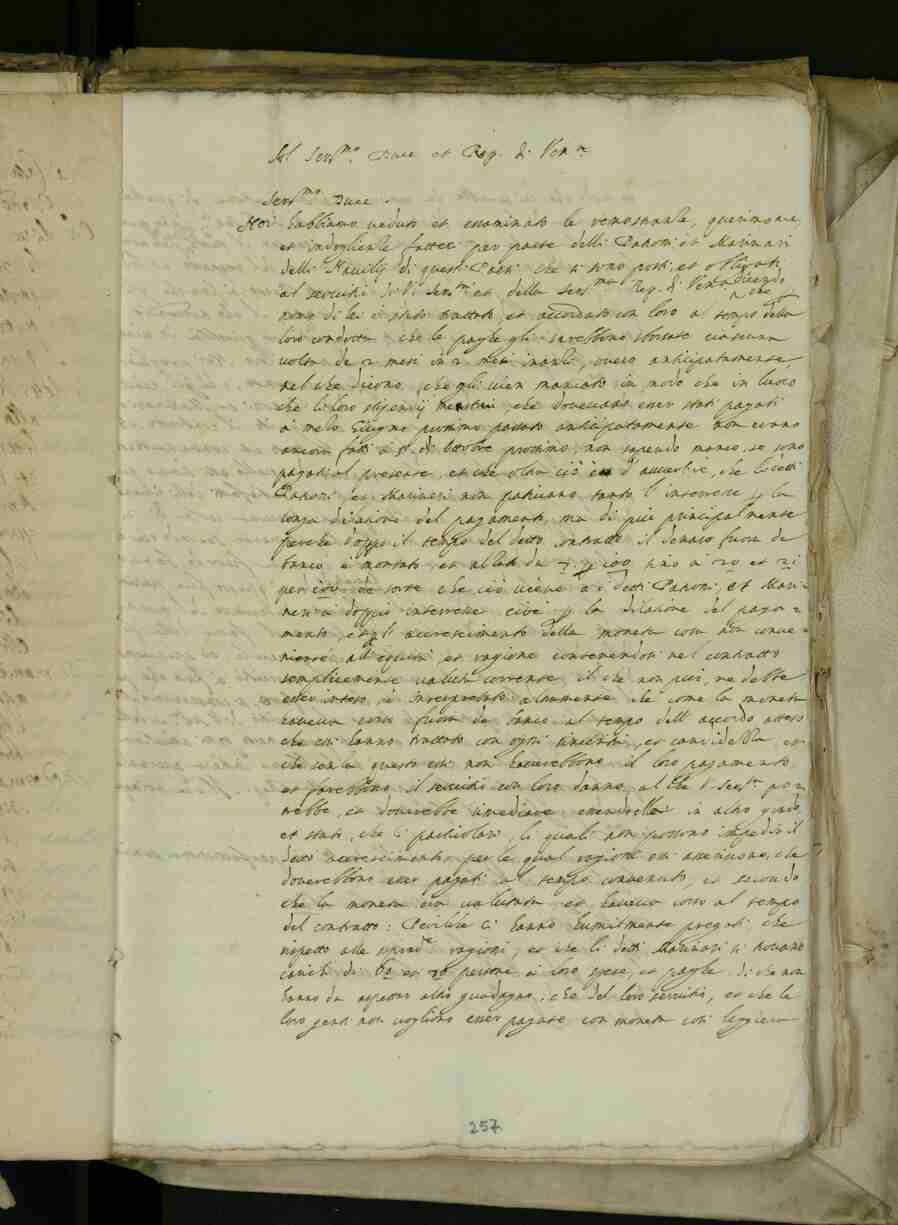 Al Ser.mo Duce et Rep. di Ven.a
Ser.mo Duce.
Noi habbiamo veduto et essaminato le remostranse, querimonie,
et indoglienze fattec per parte delli Paroni et Marinari
delli Navilij di questi Paesi che si sono posti et obligati
al servitio di V. Ser.tà et della Ser.ma Rep. di Ven.a dicendo
che
nome di lei è stato trattato et accordato con loro al tempo della
loro condotta che le paghe gli sarebbono sborsate ciascuna
volta de 2 mesi in 2 mesi inanti, overo anticipatamente,
nel che dicono, che gli vien mancato in modo che in luoco
che li loro stipendij che dovevano esser stati pagati
a mezo Giugno prossimo passato anticipatamente non erano
ancora fatti a di Ottobre prossimo, non sapendo manco, se sono
pagati al presente, et che oltra ciò è d'avvertire, che li detti
Paroni et Marinari non patiscano tanto l'interesse p la
longa dilatione del pagamento, ma di più principalmente
perche doppo il tempo del detto contratto il denaro fuora de
banco è montato, et alzato da 7 p 100 fino a 20 et 21
per cento de sorte che ciò viene a i detti Paroni, et Mari-
nari a doppio interresse cioè p la dilatione del paga-
mento, et gli accrescimento della moneta cosa non conve-
niente all'equità et ragione contenendosi nel contratto
semplicemente valuta corrente, il che non può, ne debbe
esser inteso, è interpretato altrimente che come la moneta
haveva corso fuora de banco al tempo dell'accordo atteso
che essi hanno trattato con ogni sincerità, et
che senza questo essi non haverebbono il loro pagamento
et farebbono il servitio con loro danno, al che V. Ser.tà po-
trebbe, et doverebbe rimediare essendo ella in altro grado,
et stato, che i particolari, li quali non possono impedir il
detto accrescimento, per le qual ragioni essi asseriscono, che
doverebbono esser pagati al tempo convenuto, et secondo
che la moneta era valutata et haveva corso al tempo
del contratto: Perilche ci hanno humilmente pregati, che
rispetto alle soprad.te ragioni, et che li detti Marinari si trovano
carichi di 60 et 70 persone a loro spese, et paghe di che non
hanno da aspettar altro guadagno, che del loro servitio, et che le
loro genti non vogliono esser pagate con moneta così leggiera
257